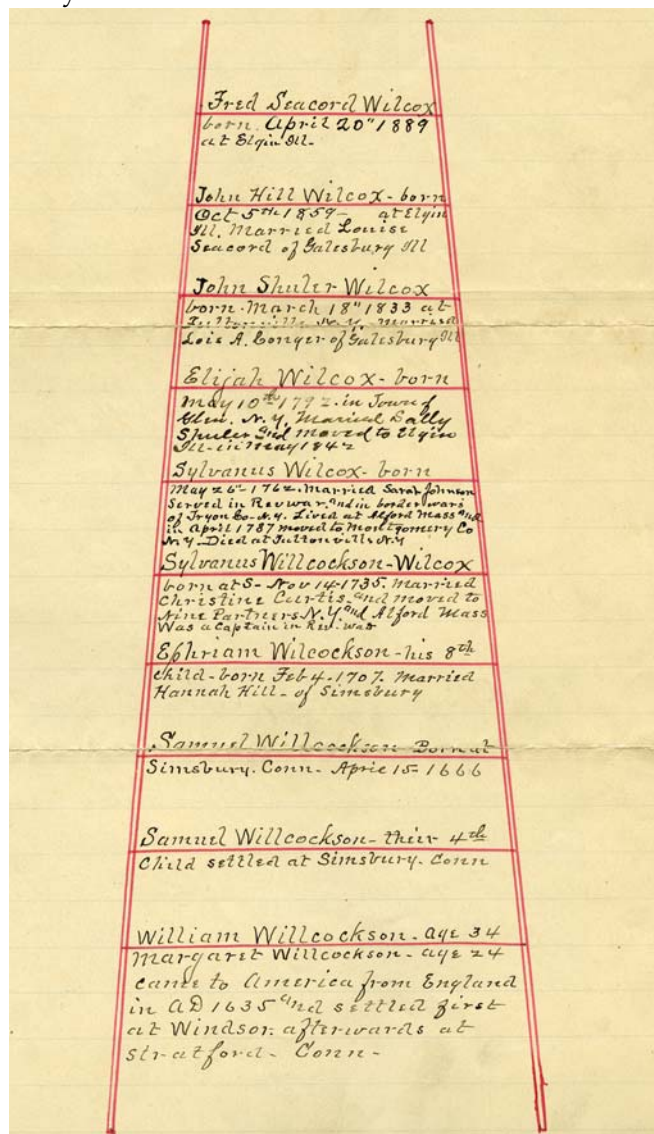 Fred Seacord Wilcox
born. April 20" 1889
at Elgin Ill-
John Hill Wilcox - born
Oct 5TH 1859- at Elgin
Ill. Married Louise
Seacord of Galesburg Ill
John Shuler Wilcox
born. March 18" 1833 at
Fultonville N.Y. Married
Lois A. Conger of Galesburg Ill
Elijah Wilcox - born
May 10th 1792. in Town of
Glen. N.Y. Maried Sally
Shuler and moved to Elgin
Ill- in May 1842
Sylvanus Wilcox - born
May 26" - 1762. Married Sarah Johnson
Served in Rev war. and in border wars
of Tryon Co- N.Y. Lived at Alford Mass and
in April 1787 moved to Montgomery Co
N.Y. Died at Fultonville N.Y
Sylvanus Willcockson-Wilcox
born at S- Nov 14-1735. Married
Christine Curtis- and moved to
Nine Partners N.Y and Alford Mass
Was a Captain in Rev. war
Ephriam Wilcockson - his 8th
child - born Feb 4. 1707. Married
Hannah Hill - of Simsbury
Samuel Willcockson Born at
Simsbury. Conn - April 15- 1666
Samuel Willcockson - their 4th
Child settled at Simsbury. Conn
William Willcockson - age 34
Margaret Willcockson - age 24
came to America from England
in AD 1635 and settled first
at Windsor. afterwards at
Stratford - Conn -